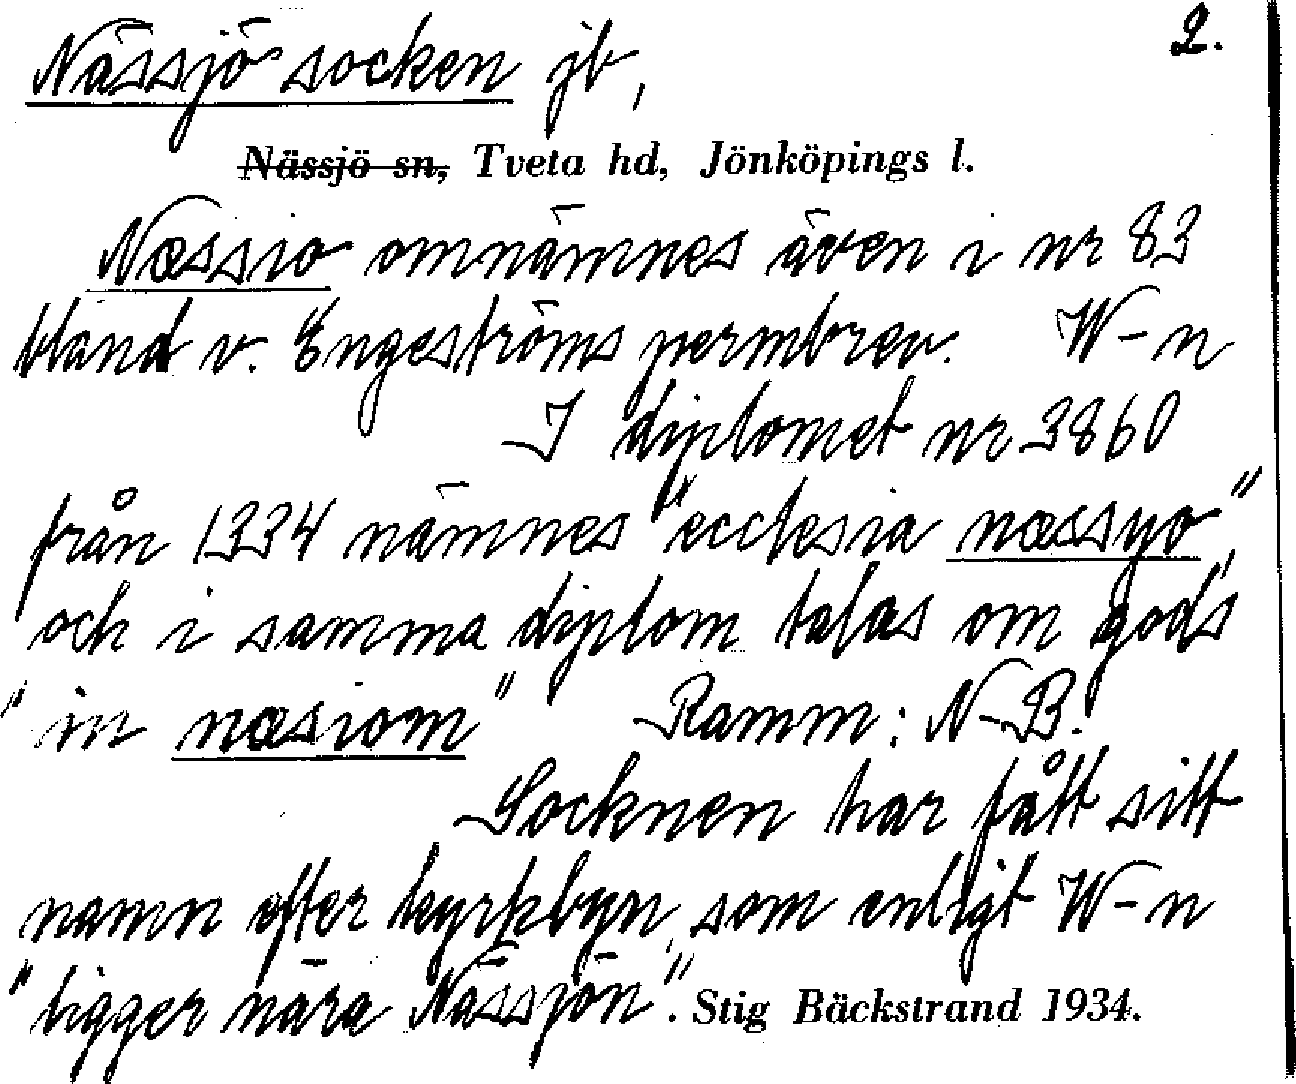 2.
Nässjö socken jb,
Nässjö sn, Tveta hd, Jönköpings l.
Næssio omnämnes även i nr 83
bland v. Engeströms permbrev. W-n
I diplomet nr 3860
från 1334 nämnes "ecclesia næssyo",
och i samma diplom talas om gods
"in næsiom" Ramm: N-B.
Socknen har fått sitt
namn efter kyrkbyn, som enligt W-n
"ligger nära Nässjön". Stig Bäckstrand 1934.